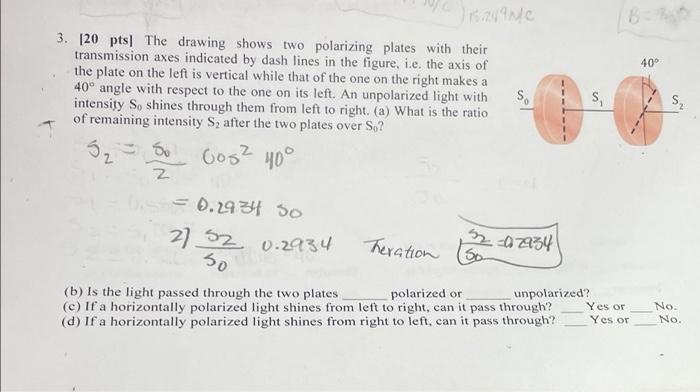 15.249 N/C
3. [20 pts] The drawing shows two polarizing plates with their
transmission axes indicated by dash lines in the figure, i.e. the axis of
the plate on the left is vertical while that of the one on the right makes a
40° angle with respect to the one on its left. An unpolarized light with
intensity S₀ shines through them from left to right. (a) What is the ratio
of remaining intensity S₂ after the two plates over S₀?
40°
S₀ S₁ S₂
S₂ = S₀/2 cos² 40°
= 0.2934 S₀
2) S₂/S₀ 0.2934 The ration S₂/S₀ = 0.2934
(b) Is the light passed through the two plates ______ polarized or ______ unpolarized?
(c) If a horizontally polarized light shines from left to right, can it pass through? ___ Yes or ___ No.
(d) If a horizontally polarized light shines from right to left, can it pass through? ___ Yes or ___ No.